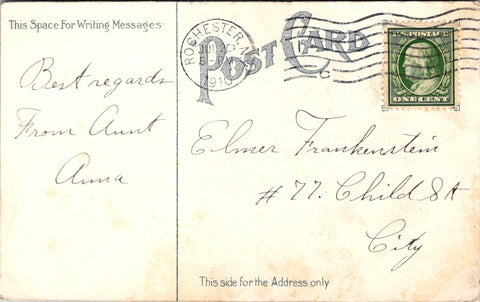 This Space For Writing Messages
POST CARD
ROCHESTER, N.
1910
U.S. POSTAGE
ONE CENT
Best regards
From Aunt
Anna
Elmer Frankenstein
# 77. Child St
City
This side for the Address only